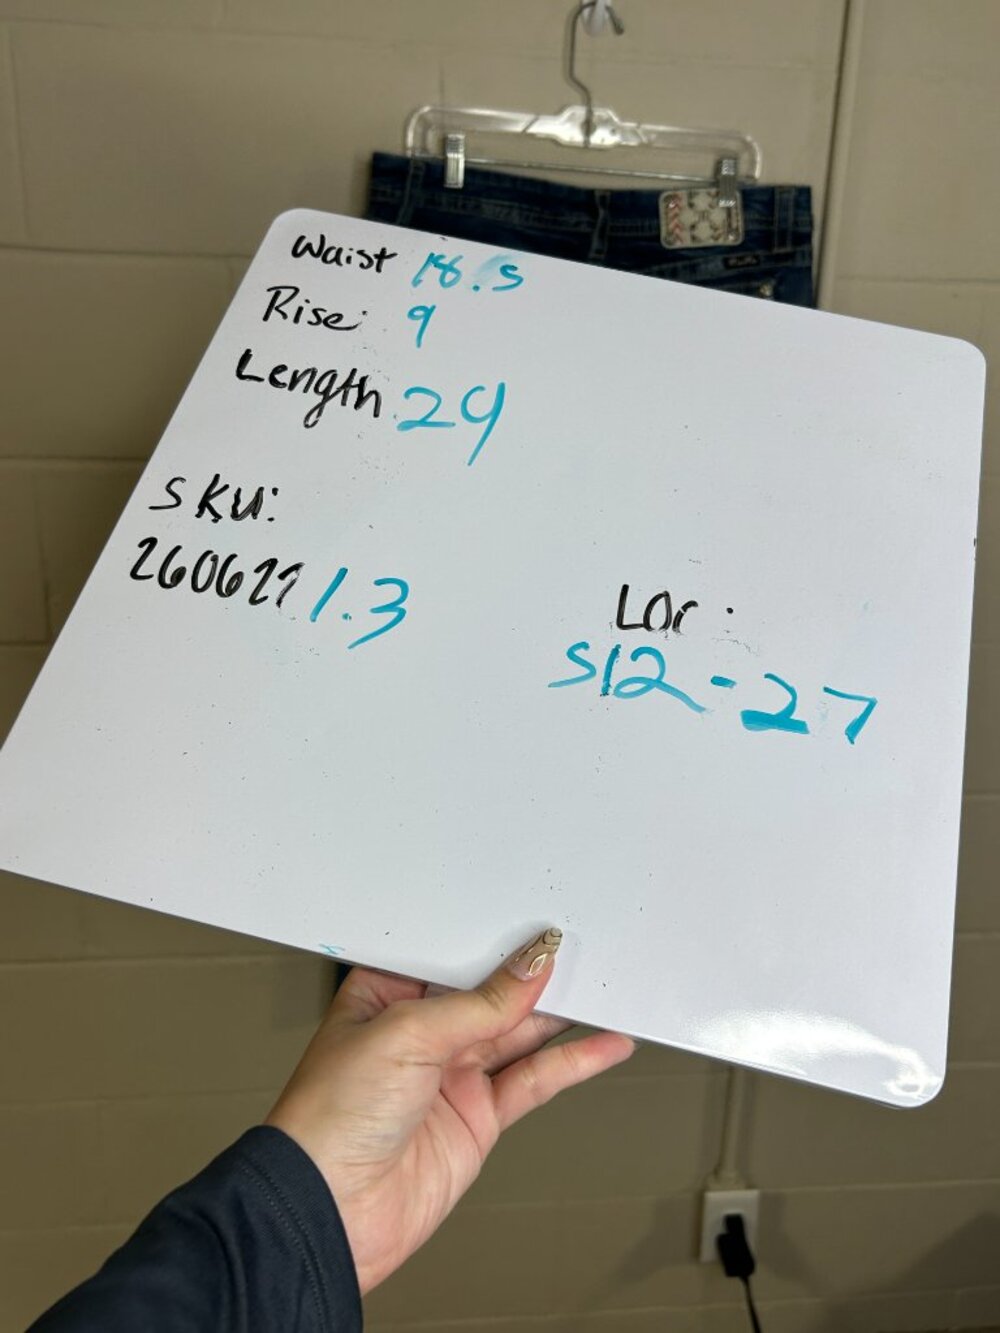 Waist 18.5
Rise: 9
Length 29
SKU:
2606271.3
Loc:
S12-27